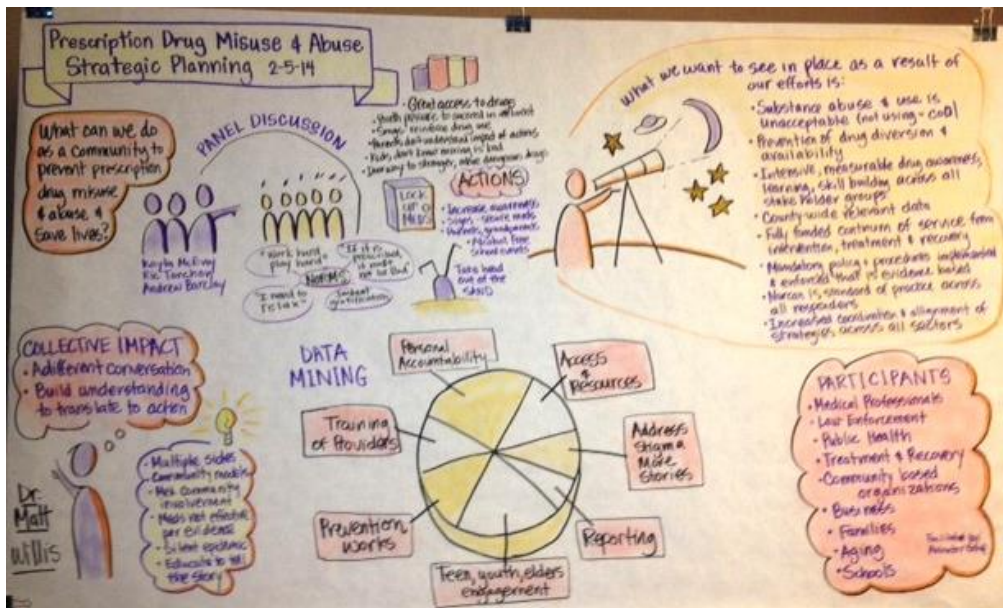 Prescription Drug Misuse & Abuse
Strategic Planning 2-5-14
What can we do
as a community to
prevent prescription
drug misuse
& abuse &
save lives?
PANEL DISCUSSION
Kayla McEvoy
Ric Torchon
Andrew Barclay
"Work hard
play hard"
"If it is
prescribed,
it must
not be bad"
NORMS
"I need to
relax"
Instant
gratification
• Great access to drugs
• Youth pressure to succeed
• Songs reinforce drug use
• Parents don't understand impact of actions
• Kids don't know mixing is bad
• Doorway to stronger, more dangerous drugs
LOCK
UP
MEDS
ACTIONS
• Increase awareness
• Signs - secure meds
• Parents, grandparents
• Alcohol free
school events
Take head
out of the
SAND
What we want to see in place as a result of
our efforts is:
• Substance abuse & use is
unacceptable (not using = cool)
• Prevention of drug diversion &
availability
• Intensive, measurable drug awareness,
learning, skill building across all
stake holder groups
• County-wide relevant data
• Fully funded continuum of service from
intervention, treatment & recovery
• Mandatory policy & procedures implemented
& enforced that is evidence based
• Narcan is standard of practice across
all responders
• Increased coordination & alignment of
strategies across all sectors
COLLECTIVE IMPACT
• A different conversation
• Build understanding
to translate to action
Dr.
Matt
Willis
• Multiple sides
• Community models
community
involvement
• Meds not effective
per evidence
• Silent epidemic
• Educate to tell
the story
DATA
MINING
Personal
Accountability
Access
&
Resources
Training
of Providers
Address
Stigma
More
Stories
Prevention
Works
Reporting
Teen, youth, elders
engagement
PARTICIPANTS
• Medical Professionals
• Law Enforcement
• Public Health
• Treatment & Recovery
• Community based
organizations
• Business
• Families
• Aging
• Schools